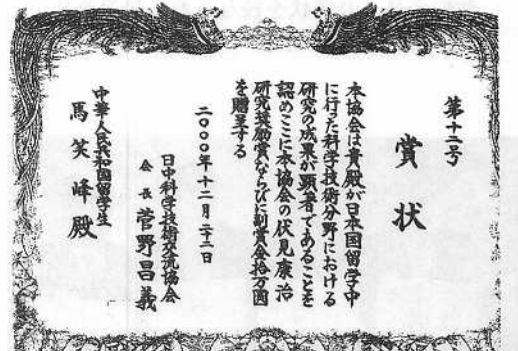 第十二号
賞状
本協会は貴殿が日本国留学中
に行った科学技術分野における
研究の成果が顕著であることを
認めここに本協会の伏見康治
研究奨励賞ならびに副賞金拾万円
を贈呈する
二〇〇〇年十二月二十二日
日中科学技術交流協会
会長 菅野昌義
中華人民共和国留学生
馬笑峰殿